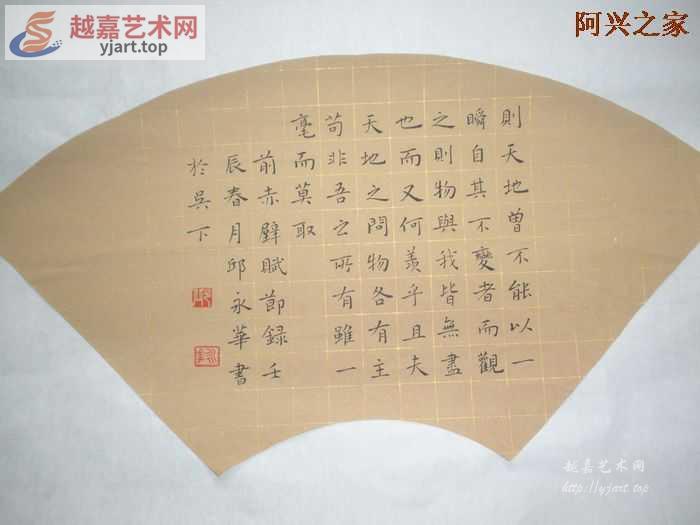 越嘉艺术网
yjart.top
阿兴之家
則天地曾不能以一
瞬自其不變者而觀
之則物與我皆無盡
也而又何羨乎且夫
天地之間物各有主
苟非吾之所有雖一
毫而莫取
前赤壁賦節録壬
辰春月邱永華書
於吳下
越嘉艺术网
http://yjart.top